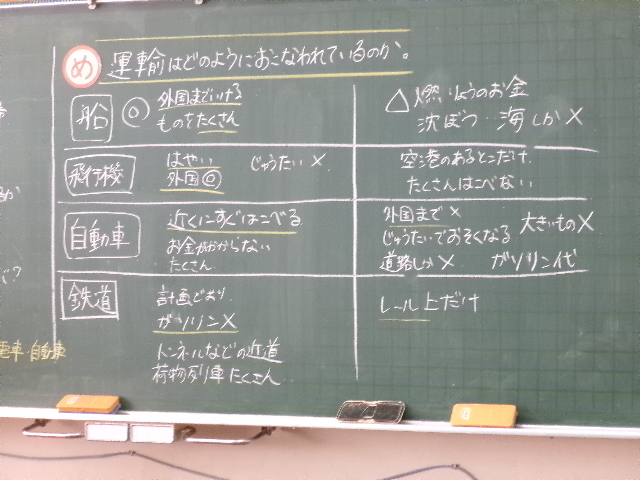 め 運輸はどのようにおこなわれているのか。
船 ◎ 外国までいける
ものをたくさん
△燃りょうのお金
沈ぼつ‥海しか×
飛行機 はやい じゅうたい×
外国◎
空港のあるとこだけ
たくさんはこべない
自動車 近くにすぐはこべる
お金がかからない
たくさん
外国まで× 大きいもの×
じゅうたいでおそくなる
道路しか× ガソリン代
鉄道 計画どおり
ガソリン×
トンネルなどの近道
荷物列車たくさん
レール上だけ
電車・自動車